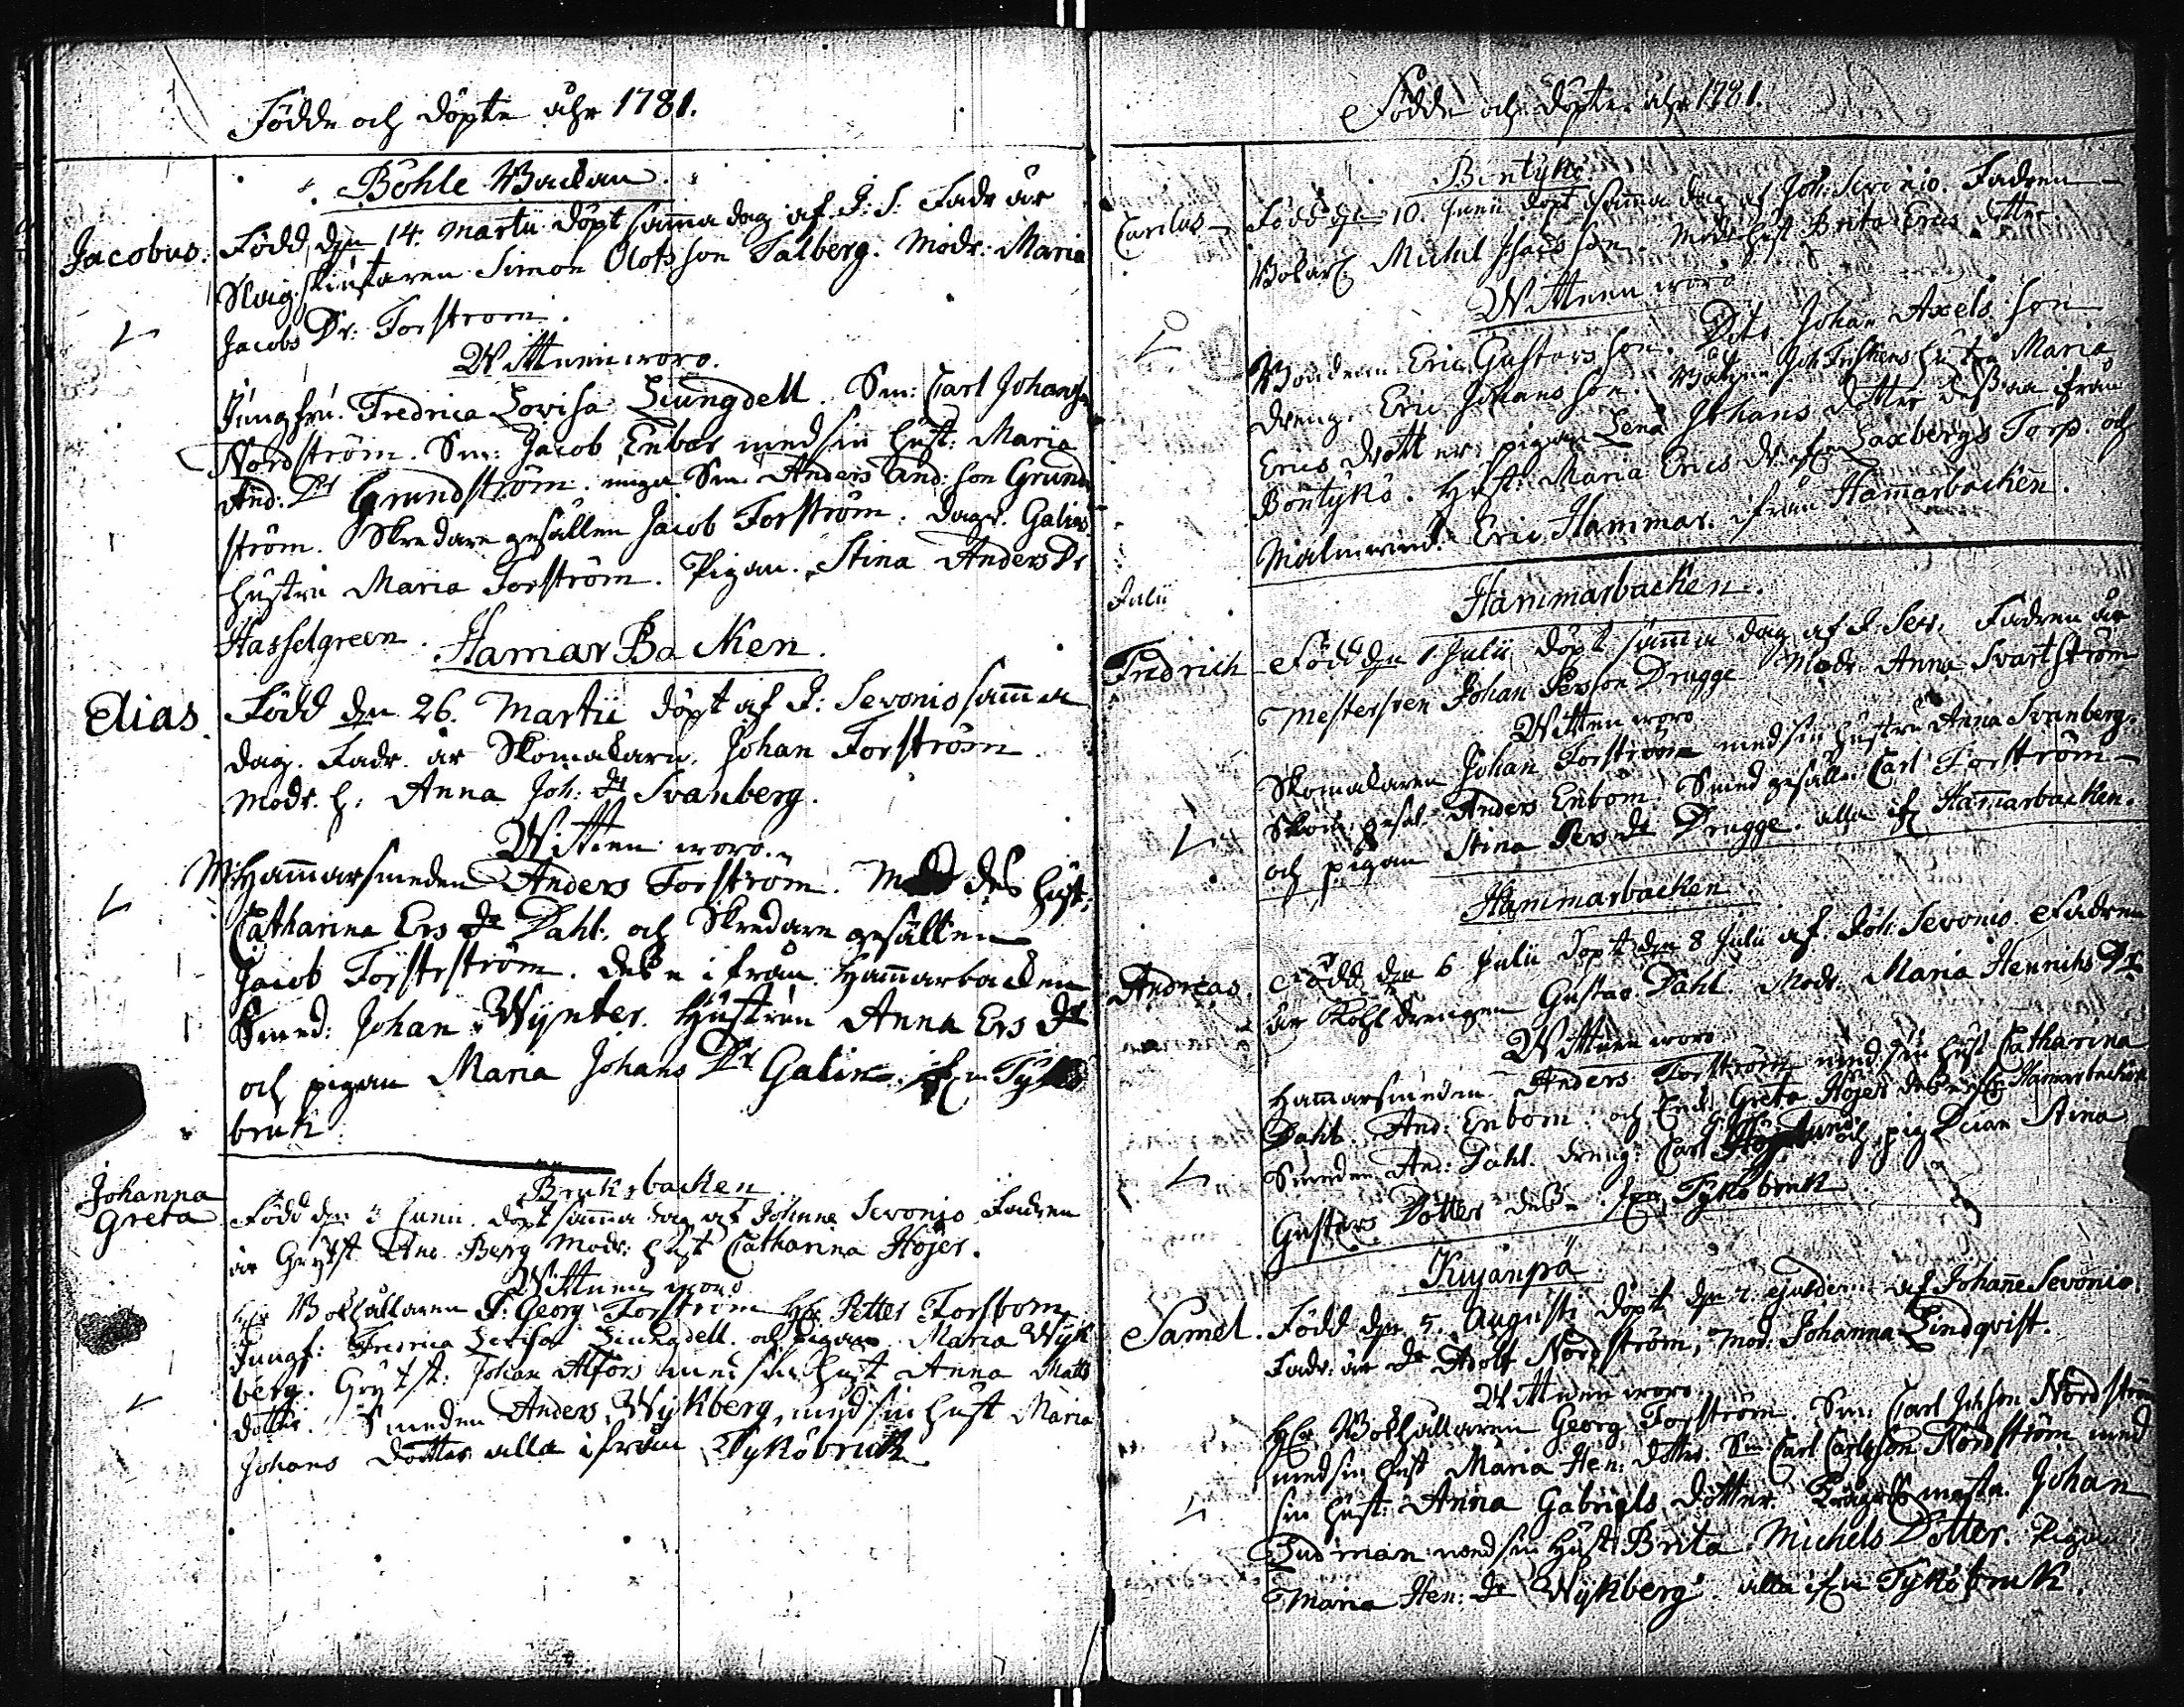 Födde och döpte åhr 1781.
Böhle Backan.
Jacobus. Född den 14. Martii döpt samma dag af J: S: Fadr är
Slagskiutaren Simon Olofsson Falberg. Modr: Maria
Jacobs Dr: Forström.
Wittnen woro.
Jungfru. Fredrica Lovisa Liungdell. Sm: Carl Johans son
Nordström. Sm: Jacob Enbor med sin hust: Maria
And: Dr Grundström. unga Sm: Anders And: son Grund
ström. Skredare gesällen Jacob Forström. dagr. Galins
hustru Maria Forström. Pigan. Stina Anders Dr
Hasselgreen.
Hamar Backen.
Elias. Född den 26. Martii döpt af J: Sevonio samma
dag. Fadr. är Skomakarn. Johan Forström
Modr. h: Anna Joh: dr Svanberg.
Witnen woro.
M: Hammarsmeden Anders Forström. Med des hust:
Catharina Ers dr Dahl. och Skredare gesällen
Jacob Forström. desse ifrån Hammarbacken
Smed: Johan Wynter. Hustrun Anna Ers dr
och pigan Maria Johans Dr Galin. ifrån Tykö
bruk.
Bruksbacken
Johanna
Greta Född den 3 Junii. döpt samma dag af Johanne Sevonio Fadren
är Grytst And. Berg Modr: Hust Catharina Höjer.
Wittnen woro
Hr Bokhållaren J: Georg Forström Hr Petter Forsbom
Jungf: Fredrica Lovisa Liungdell. och Pigan Maria Wyk
berg. Grytst: Johan Alfors med sin hust Anna Matts
dotter. Smeden Anders Wykberg, med sin hust Maria
Johans dotter alla ifrån Tyköbruk
Födde och döpte åhr 1781.
Böntykö.
Carolus Född den 10. Junii döpt samma dag af Joh: Sevonio. Fadren
Michel son. Modr hust Brita Erics dotter
Wittnen woro
Bonden Eric Gustavs son. Dito Johan Axels son
dräng. Eric Johans son. Maria
Erics dotter pigan Lena Johans dotter dessa ifrån
Böntykö. Hust: Maria Erics dr ifrån Laxbergs Torp. och
Eric Hammar. ifrån Hammarbacken.
Julii
Hammarbacken.
Fridrich Född den 1 Julii döpt samma dag af J. Sev: Fadren är
Mestersven Johan Persson Drugge Modr: Anna Svartström
Witnen woro
Skomakaren Johan Forström med sin hustru Anna Svanberg.
Skom: gesel: Anders Enbom. Smed gesällen Carl Forström
och pigan Stina Pers dr Drugge. alla ifr Hammarbacken.
Hammarbacken
Andreas. Född den 6 Julii döpt den 8 Julii af Joh: Sevonio Fadren
är Kohldrengen Gustav Dahl. Modr. Maria Henrichs Dr
Wittnen woro
Hammarsmeden Anders Forström med sin hust Catharina
Dahl. And: Enbom. och Enk: Greta Höjer desse ifrån Hammarbacken
Smeden And: Dahl. dreng: Carl och pig Stina
Gustavs Dotter desse ifrån Tyköbruk
Kuyanpä
Samel. Född den 5. Augusti döpt den 7. af Johanne Sevonio.
Fadr: är Adolf Nordström, Mod: Johanna Lindqvist.
Wittnen woro.
Hr Bokhållaren Georg Forström. Sm: Carl Joh son Nordström
med sin hust Maria Hen: dotter. Sm Carl Carlsson Nordström med
sin hust: Anna Gabriels dotter. Johan
Sudman med sin hust Brita Michels Dotter. Pigan
Maria Hen: dr Wykberg. alla ifrån Tyköbruk.